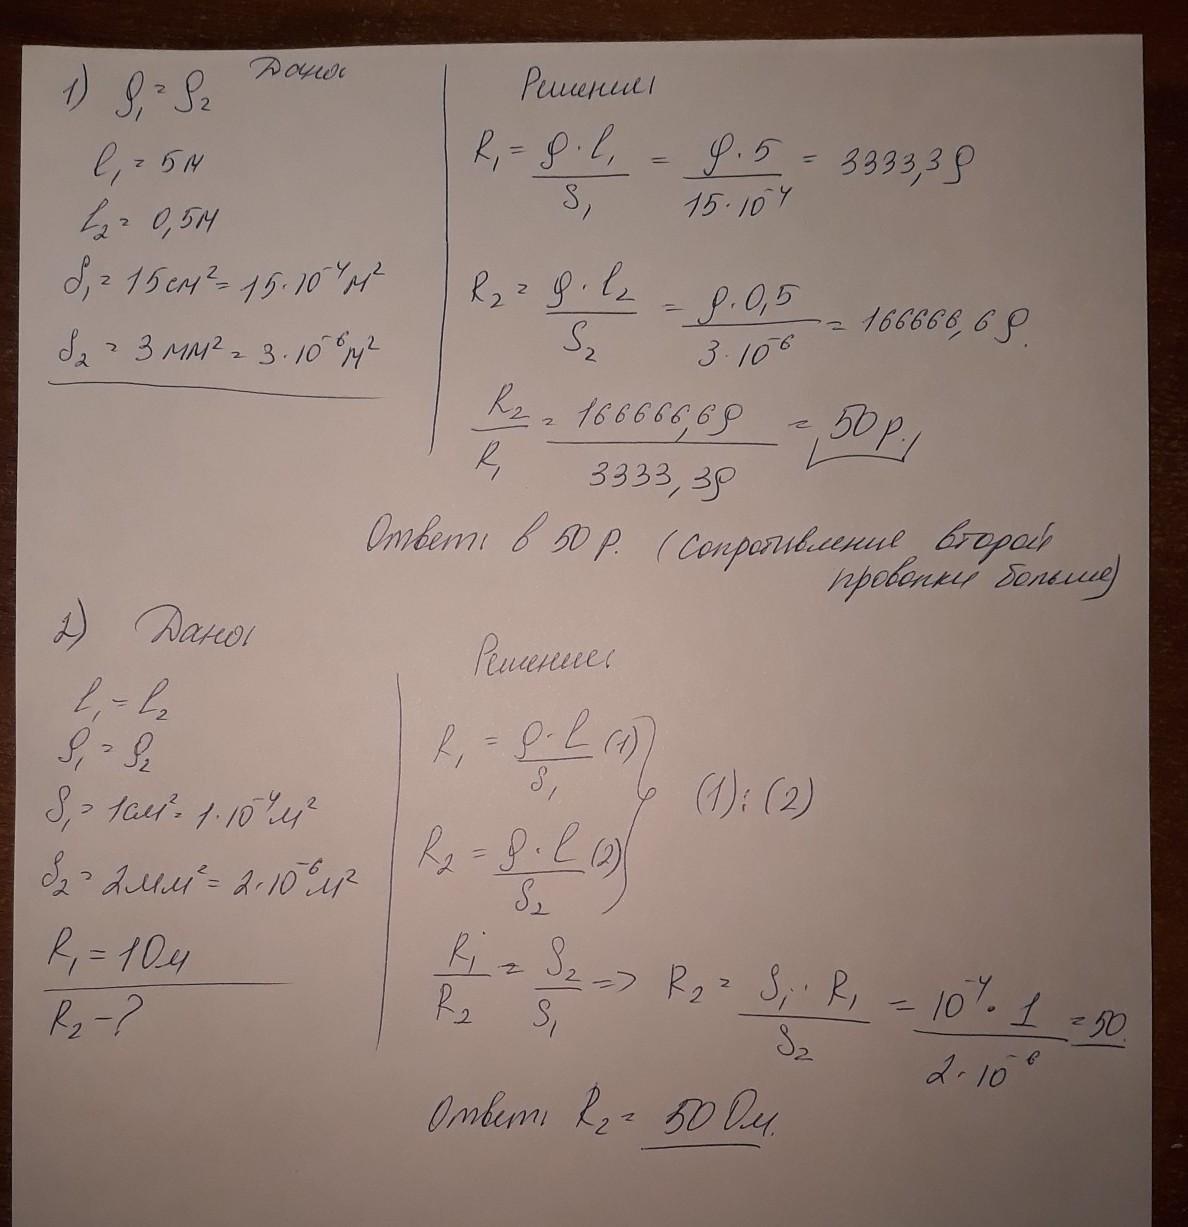 1) Дано:
ρ₁ = ρ₂
l₁ = 5м
l₂ = 0,5м
S₁ = 15см² = 15·10⁻⁴м²
S₂ = 3мм² = 3·10⁻⁶м²
Решение:
R₁ = ρ·l₁/S₁ = ρ·5/15·10⁻⁴ = 3333,3ρ
R₂ = ρ·l₂/S₂ = ρ·0,5/3·10⁻⁶ = 166666,6ρ.
R₂/R₁ = 166666,6ρ/3333,3ρ = 50р.
Ответ: в 50р. (сопротивление второй
проволки больше)
2) Дано:
l₁ = l₂
ρ₁ = ρ₂
S₁ = 1см² = 1·10⁻⁴м²
S₂ = 2мм² = 2·10⁻⁶м²
R₁ = 1Ом
R₂ - ?
Решение:
R₁ = ρ·l/S₁ (1)
R₂ = ρ·l/S₂ (2)
(1):(2)
R₁/R₂ = S₂/S₁ => R₂ = S₁·R₁/S₂ = 10⁻⁴·1/2·10⁻⁶ = 50.
Ответ: R₂ = 50 Ом.